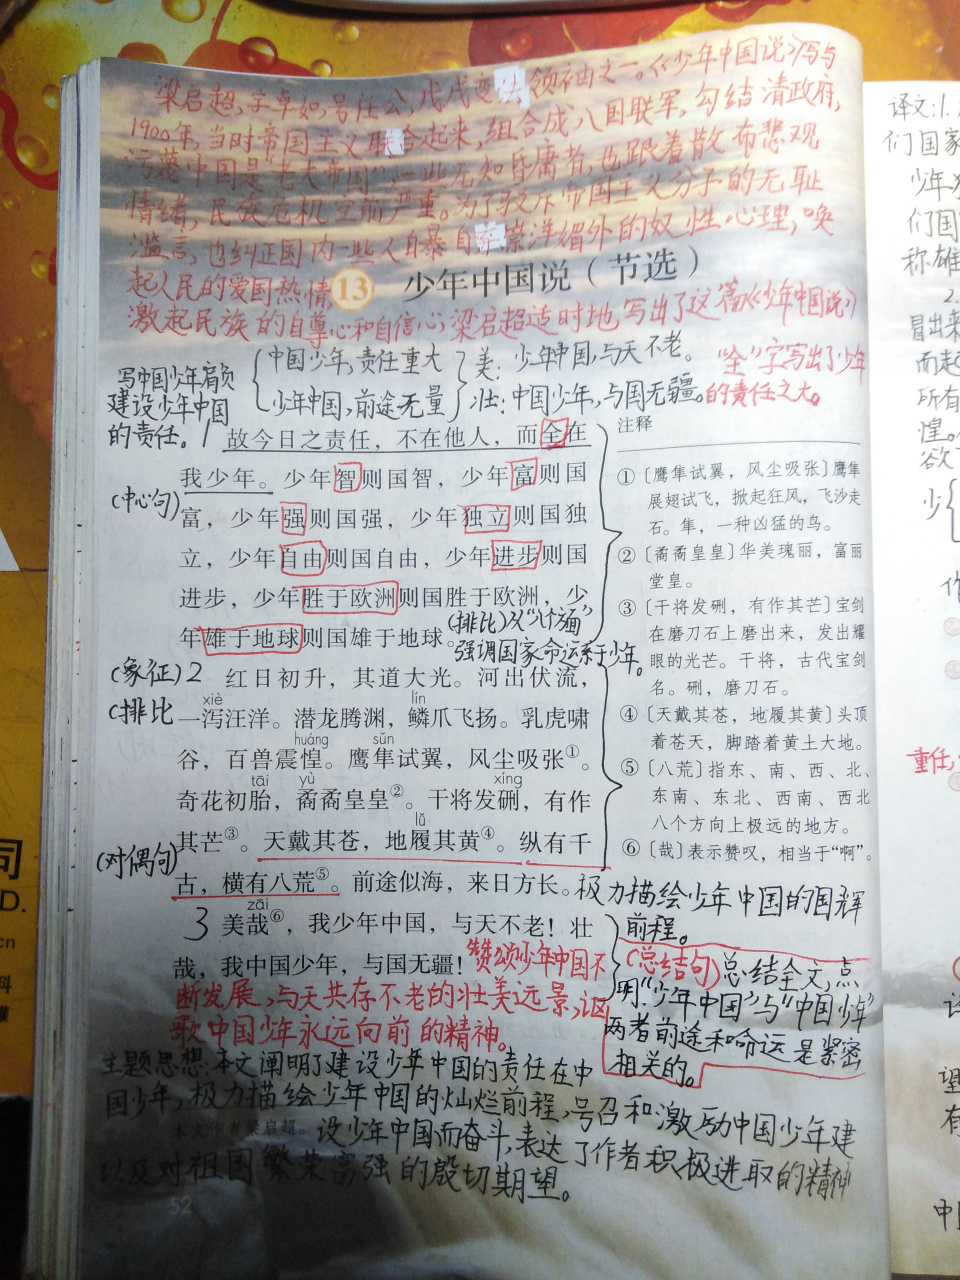 梁启超,字卓如,号任公,戊戌变法领袖之一。《少年中国说》写与
1900年,当时帝国主义联合起来,组合成八国联军,勾结清政府,
污蔑中国是"老大帝国",一些无知昏庸者,也跟着散布悲观
情绪,民族危机空前严重。为了驳斥帝国主义分子的无耻
滥言,也纠正国内一些人自暴自弃崇洋媚外的奴性心理,唤
起人民的爱国热情,
13 少年中国说(节选)
激起民族的自尊心和自信心,梁启超适时地写出了这篇《少年中国说》
写中国少年肩负
建设少年中国
的责任。
中国少年,责任重大
少年中国,前途无量
美:少年中国,与天不老。
壮:中国少年,与国无疆。
"全"字写出了少年
的责任之大。
1 故今日之责任,不在他人,而全在
(中心句)
我少年。少年智则国智,少年富则国
富,少年强则国强,少年独立则国独
立,少年自由则国自由,少年进步则国
进步,少年胜于欧洲则国胜于欧洲,少
年雄于地球则国雄于地球。
(排比)从"八个方面"
强调国家命运系于少年。
(象征)2 红日初升,其道大光。河出伏流,
(排比
xiè lín
一泻汪洋。潜龙腾渊,鳞爪飞扬。乳虎啸
huáng sǔn
谷,百兽震惶。鹰隼试翼,风尘吸张①。
tāi yù xíng
奇花初胎,矞矞皇皇②。干将发硎,有作
lǚ
其芒③。天戴其苍,地履其黄④。纵有千
(对偶句)
古,横有八荒⑤。前途似海,来日方长。
极力描绘少年中国的国辉
前程。
zāi
3 美哉⑥,我少年中国,与天不老!壮
哉,我中国少年,与国无疆!
赞颂少年中国不
断发展,与天共存不老的壮美远景,讴
歌中国少年永远向前的精神。
(总结句)总结全文,点
明"少年中国"与"中国少年"
两者前途和命运是紧密
相关的。
主题思想:本文阐明了建设少年中国的责任在中
国少年,极力描绘少年中国的灿烂前程,号召和激励中国少年建
本文作者梁启超。
设少年中国而奋斗,表达了作者积极进取的精神
以及对祖国繁荣富强的殷切期望。
52
注释
①〔鹰隼试翼,风尘吸张〕鹰隼
展翅试飞,掀起狂风,飞沙走
石。隼,一种凶猛的鸟。
②〔矞矞皇皇〕华美瑰丽,富丽
堂皇。
③〔干将发硎,有作其芒〕宝剑
在磨刀石上磨出来,发出耀
眼的光芒。干将,古代宝剑
名。硎,磨刀石。
④〔天戴其苍,地履其黄〕头顶
着苍天,脚踏着黄土大地。
⑤〔八荒〕指东、南、西、北、
东南、东北、西南、西北
八个方向上极远的地方。
⑥〔哉〕表示赞叹,相当于"啊"。
译文:1.
们国家
少年
们国
称雄
2.
冒出来
而起
所有
惶。
欲
少
作
重任,
望
有
中
司
D.
cn
料